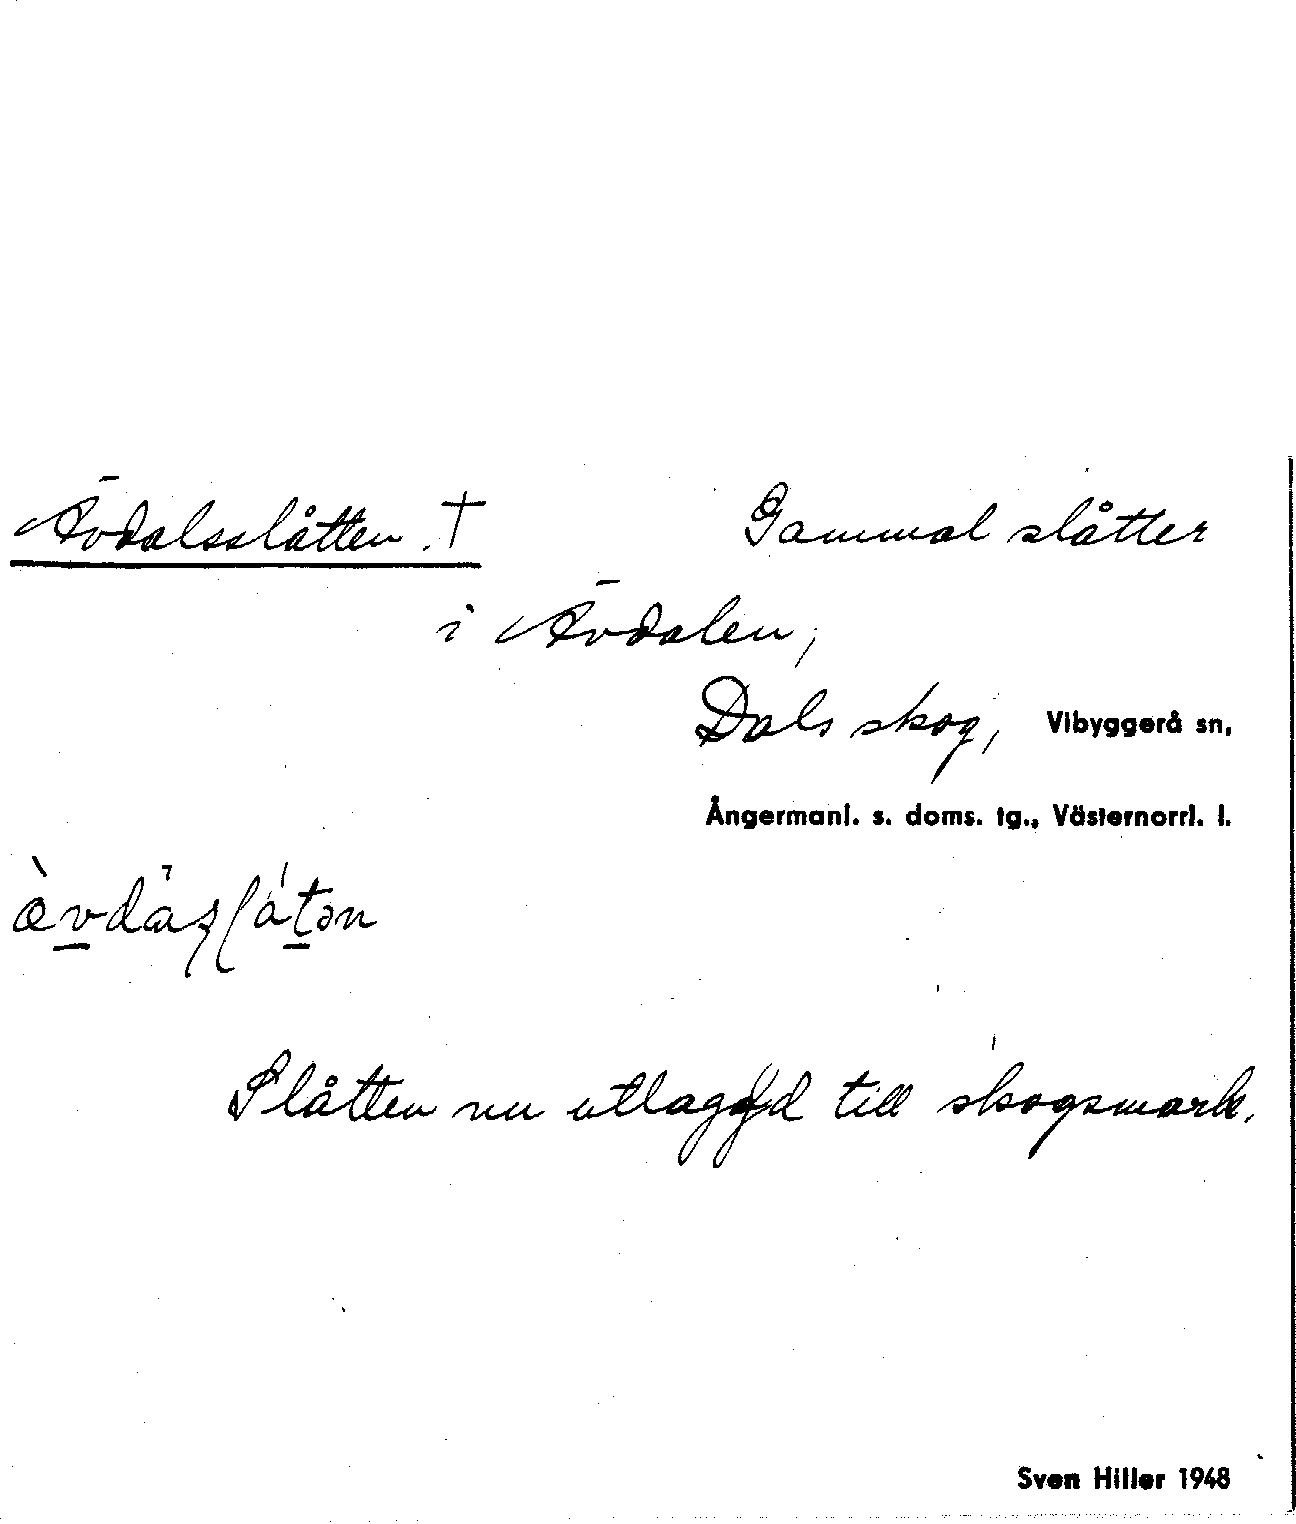 Ävdalsslåtten. †
Gammal slåtter
i Ävdalen,
Dals skog, Vibyggerå sn,
Ångermanl. s. doms. tg., Västernorrl. l.
Slåtten nu utlagd till skogsmark.
Sven Hiller 1948